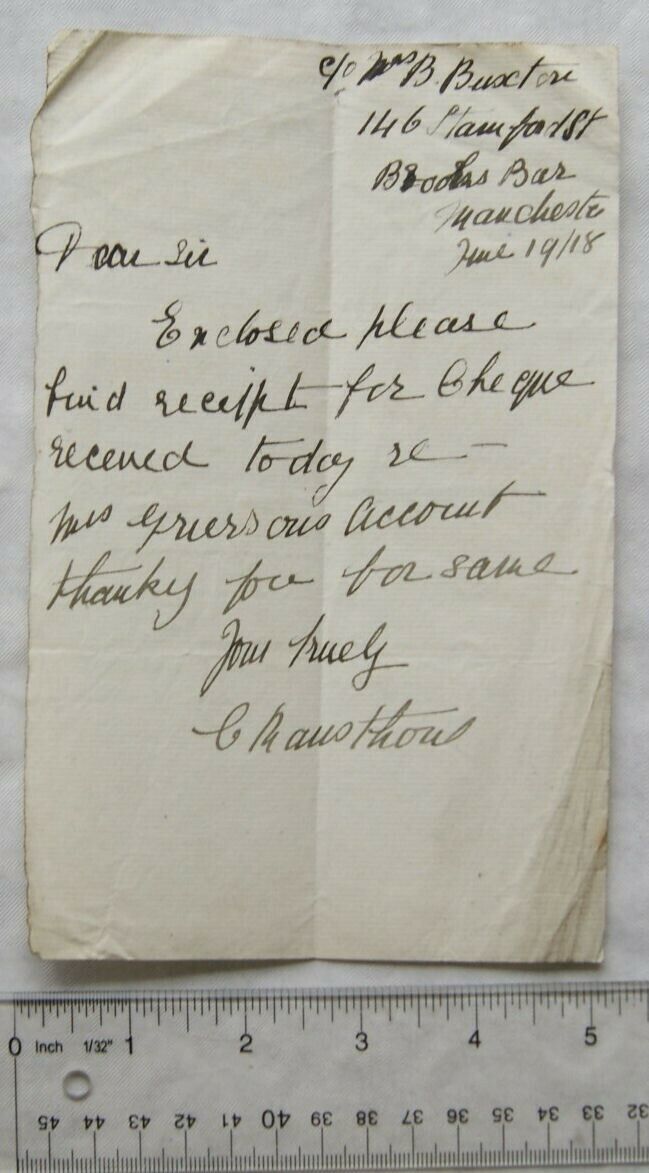 c/o Mrs B. Buxton
146 Stamford St
Brooks Bar
Manchester
June 19/18
Dear Sir
Enclosed please
find receipt for Cheque
received today re —
Mrs Griersons Account
thankg you for same
Yours truely
C
0 Inch 1/32" 1 2 3 4 5
45 44 43 42 41 40 39 38 37 36 35 34 33 32